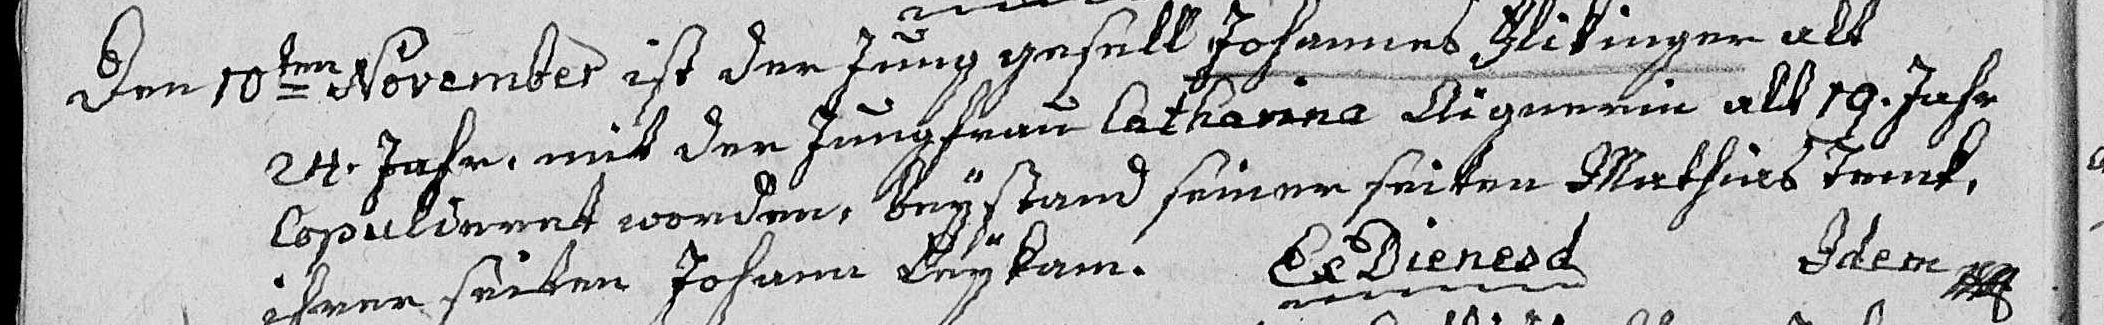 Den 10ten November ist der Jung gesell Johannes Flikinger alt
24. Jahr. mit der Jungfrau Catharina Aignerin alt 19. Jahr
Copulieret worden, beÿstand seiner seiten Mathias
ihrer seiten Johann Leÿkam. Ex Dienesd Idem